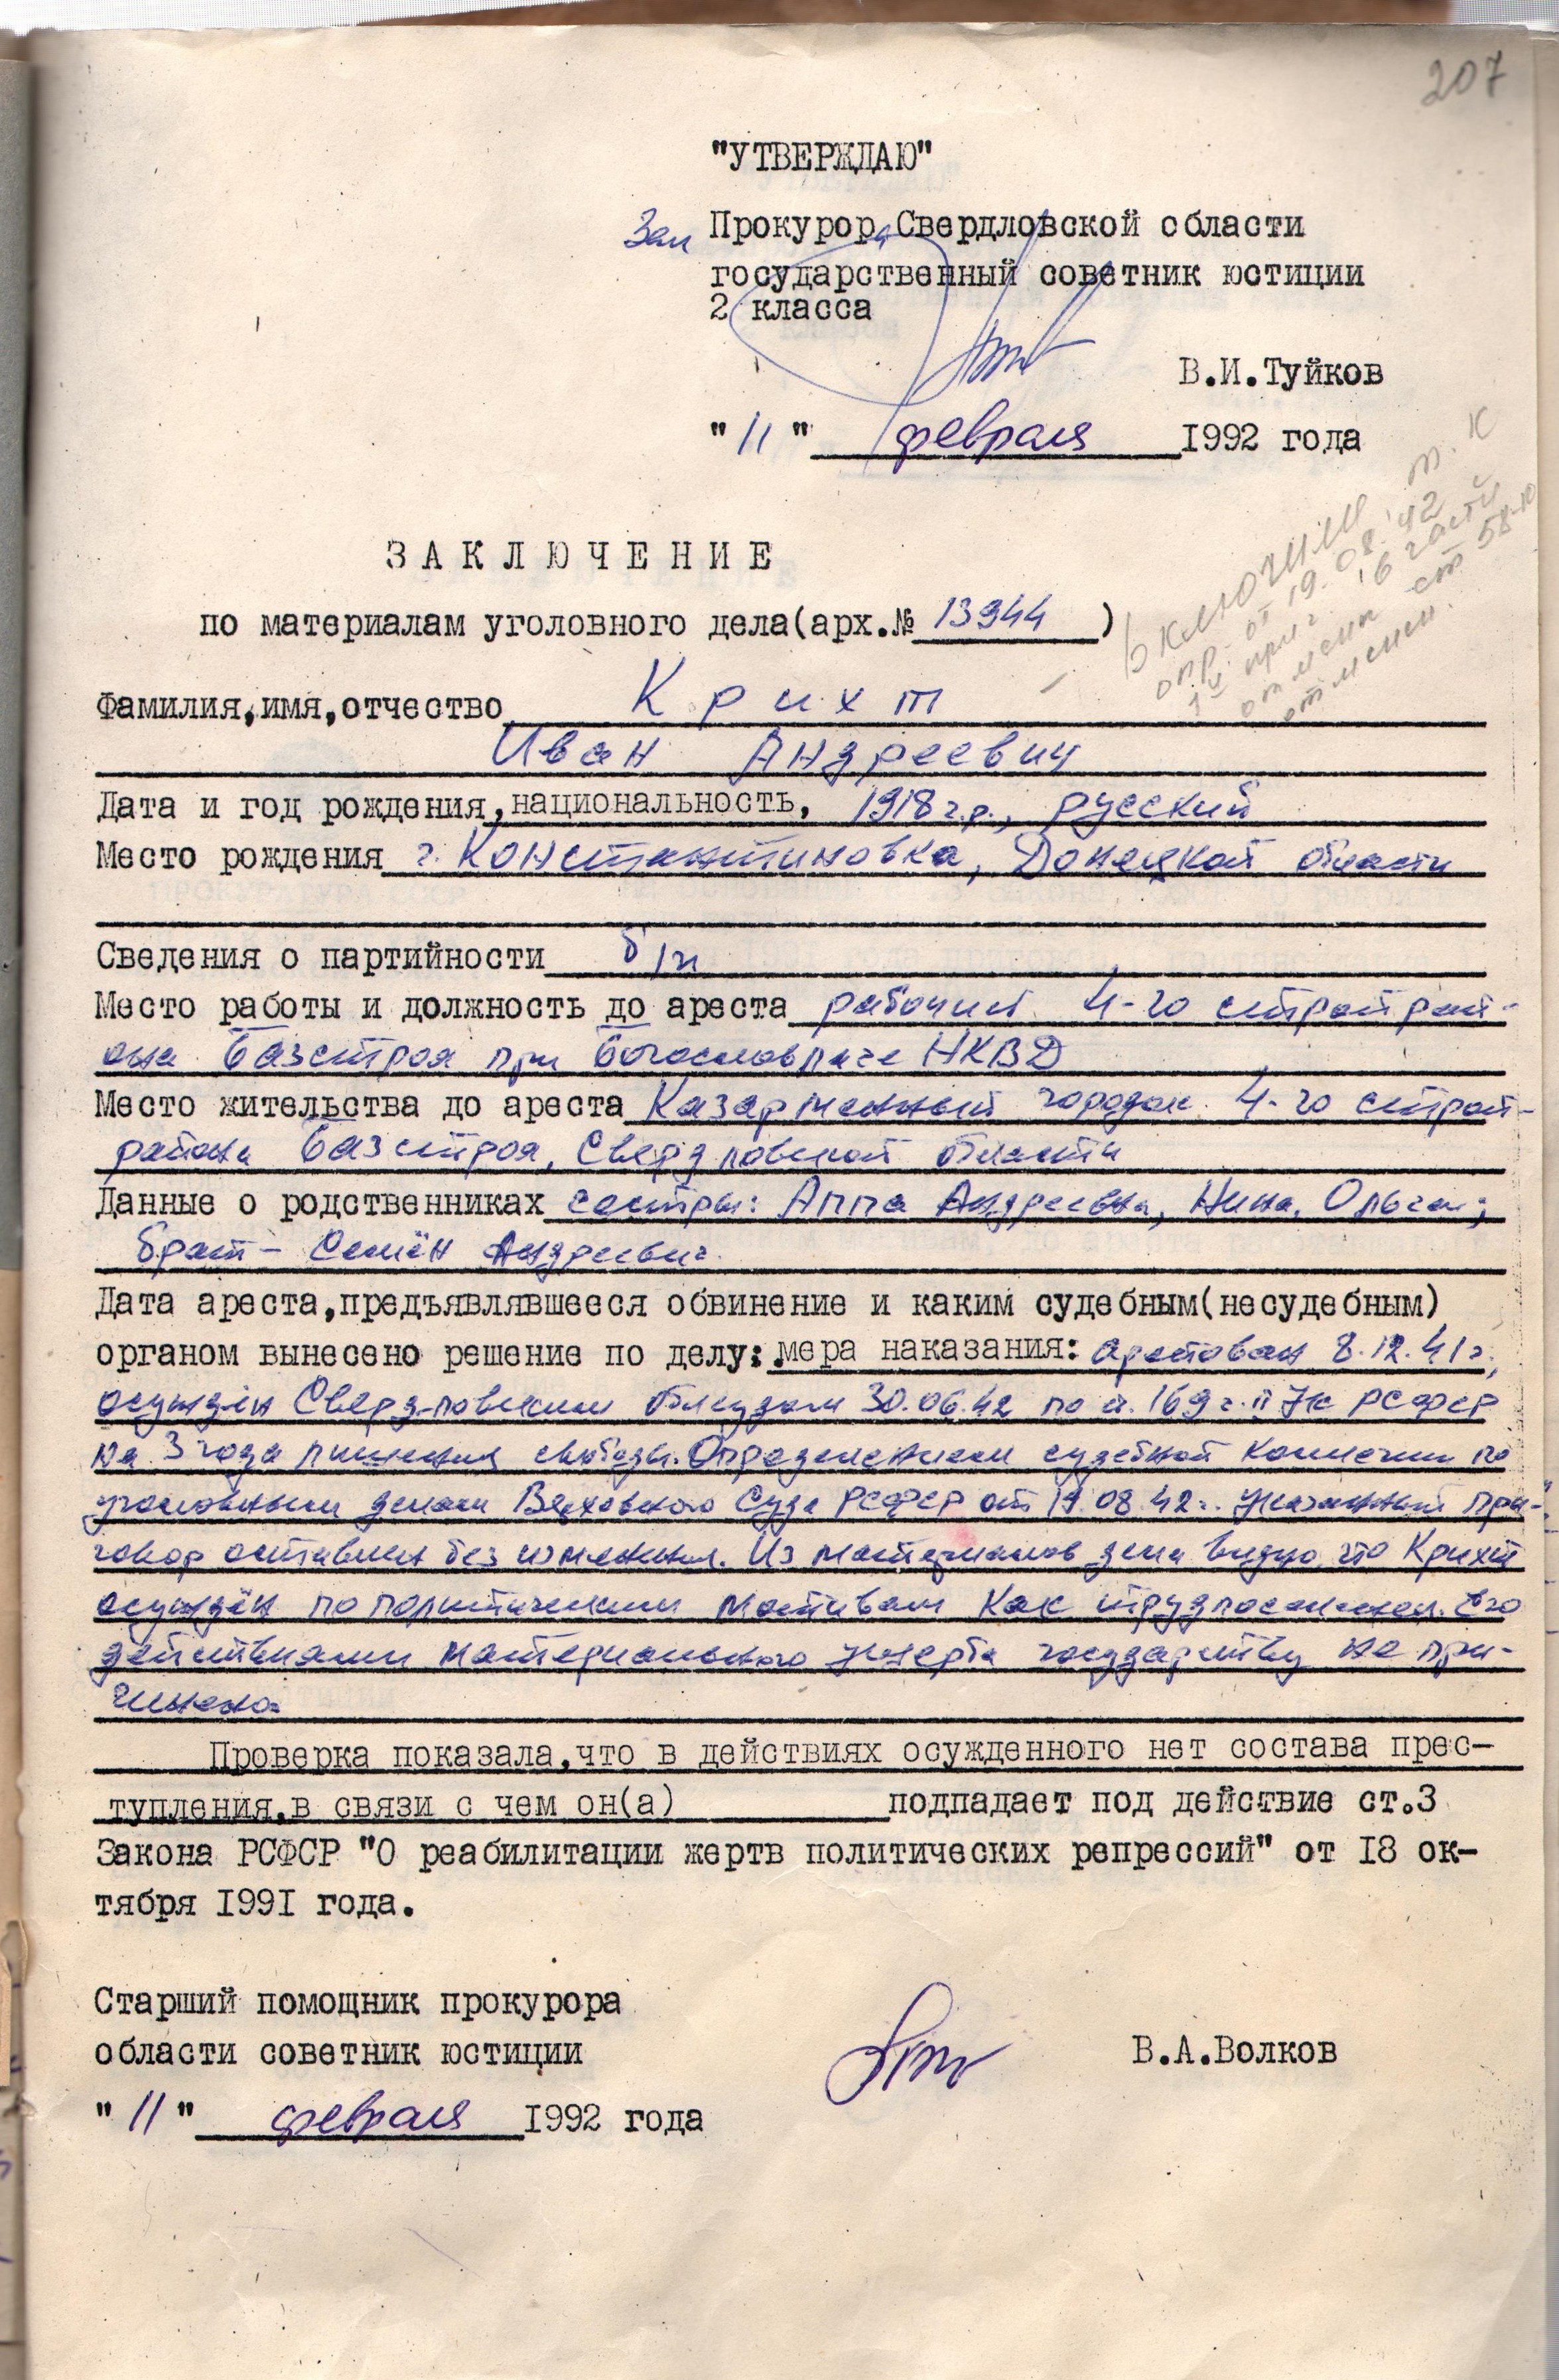 207
"УТВЕРЖДАЮ"
Зам Прокурора Свердловской области
государственный советник юстиции
2 класса
В.И.Туйков
"11" февраля 1992 года
ЗАКЛЮЧЕНИЕ
по материалам уголовного дела(арх.№ 13944)
опр. от 19.08.42 т.к
части
ст 58-10
отменен.
Фамилия,имя,отчество Крихт
Иван Андреевич
Дата и год рождения,национальность, 1918 г.р., русский
Место рождения г. Константиновка, Донецкой области
Сведения о партийности б/п
Место работы и должность до ареста рабочий 4-го стройрай-
она Базстроя при Богословлаге НКВД
Место жительства до ареста Казарменный городок 4-го строй-
района Базстроя, Свердловской области
Данные о родственниках сестры: Анна Андреевна, Нина, Ольга;
брат - Семён Андреевич.
Дата ареста,предъявлявшееся обвинение и каким судебным(несудебным)
органом вынесено решение по делу; мера наказания: арестован 8.12.41 г.,
осуждён Свердловским облсудом 30.06.42 по ст. 169 ч. II УК РСФСР
на 3 года лишения свободы. Определением судебной коллегии по
уголовным делам Верховного Суда РСФСР от 19.08.42 г. указанный при-
говор оставлен без изменения. Из материалов дела видно, что Крихт
осуждён по политическим мотивам как трудпоселенец. Его
действиями материального ущерба государству не при-
чинено.
Проверка показала,что в действиях осужденного нет состава прес-
тупления,в связи с чем он(а) подпадает под действие ст.3
Закона РСФСР "О реабилитации жертв политических репрессий" от I8 ок-
тября I99I года.
Старший помощник прокурора
области советник юстиции В.А.Волков
"11" февраля 1992 года